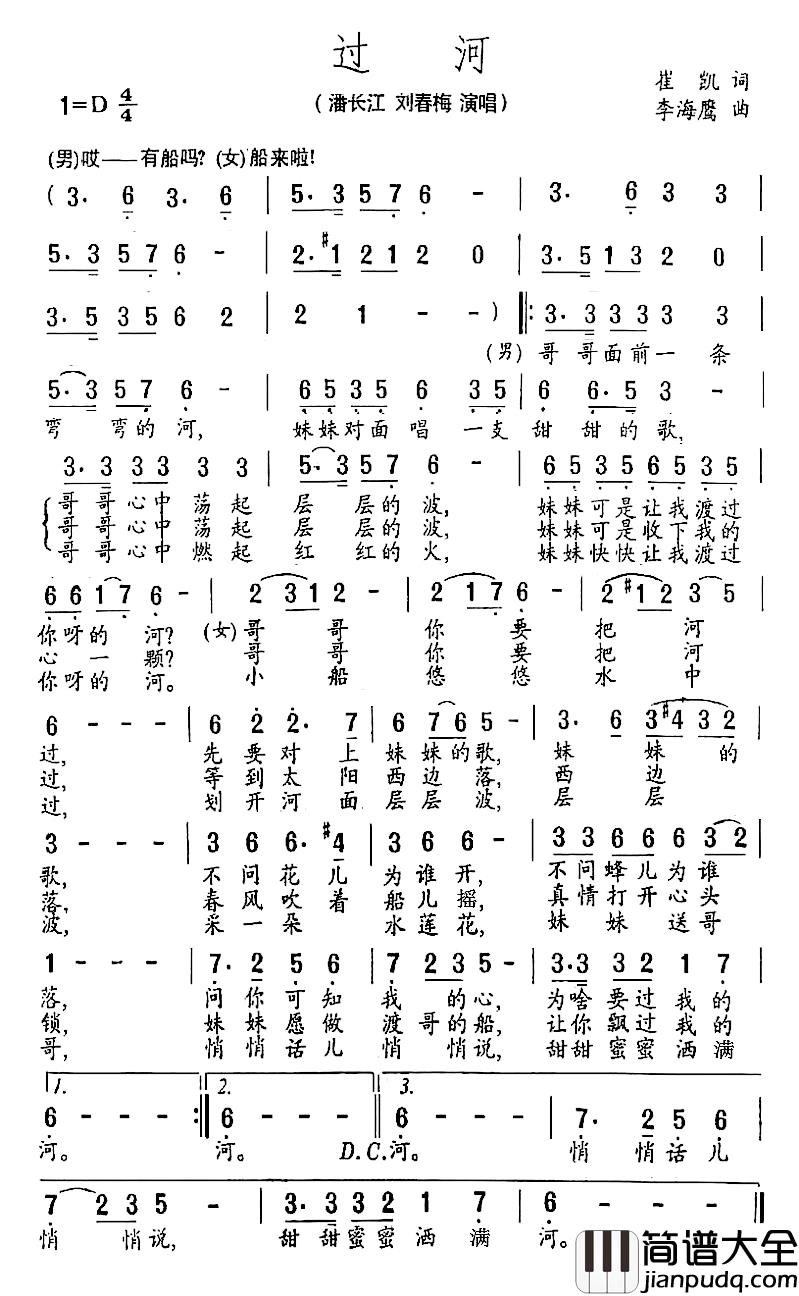 过 河
1=D 4/4
(潘长江 刘春梅 演唱)
崔 凯 词
李海鹰 曲
(男)哎——有船吗? (女)船来啦!
( 3· 6 3· 6 | 5·3 5 7 6 - | 3· 6 3 3 |
5·3 5 7 6 - | 2·#1 2 1 2 0 | 3·5 1 3 2 0 |
3·5 3 5 6 2 | 2 1 - - ) ‖: 3·3 3 3 3 3 |
(男) 哥 哥 面 前 一 条
5·3 5 7 6 - | 6 5 3 5 6 3 5 | 6 6·5 3 - |
弯 弯的 河, 妹妹对面 唱 一支 甜 甜的歌,
3·3 3 3 3 3 | 5·3 5 7 6 - | 6 5 3 5 6 5 3 5 |
哥哥心中荡起 层 层的波, 妹妹可是让我渡过
哥哥心中荡起 层 层的波, 妹妹可是收下我的
哥哥心中燃起 红 红的火, 妹妹快快让我渡过
6 6 1 7 6 - | 2 3 1 2 - | 2 1 7 6 - | 2 #1 2 3 5 |
你呀的 河? (女)哥 哥 你 要 把 河
心 一 颗? 哥 哥 你 要 把 河
你呀的 河。 小 船 悠 悠 水 中
6 - - - | 6 2 2· 7 | 6 7 6 5 - | 3· 6 3 #4 3 2 |
过, 先 要 对 上 妹 妹的歌, 妹 妹 的
过, 等 到 太 阳 西 边 落, 西 边
过, 划 开 河 面 层 层 波, 层 层
3 - - - | 3 6 6· #4 | 3 6 6 - | 3 3 6 6 6 3 2 |
歌, 不 问 花 儿 为 谁 开, 不问蜂儿为谁
落, 春 风 吹 着 船 儿 摇, 真情打开心头
波, 采 一 朵 水 莲 花, 妹 妹 送 哥
1 - - - | 7· 2 5 6 | 7 2 3 5 - | 3·3 3 2 1 7 |
落, 问 你 可 知 我 的 心, 为啥要过我的
锁, 妹 妹 愿 做 渡 哥的船, 让你飘过我的
哥, 悄 悄 话 儿 悄 悄 说, 甜甜蜜蜜洒满
1. 2. 3.
6 - - - :‖ 6 - - - ‖ 6 - - - | 7· 2 5 6 |
河。 河。 D.C.河。 悄 悄 话 儿
7 2 3 5 - | 3·3 3 2 1 7 | 6 - - - ‖
悄 悄说, 甜 甜蜜蜜 洒 满 河。
简谱大全
jianpudq.com